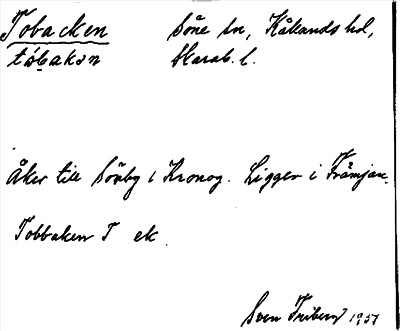 Tobacken Såne sn, Kållands hd,
tóbakən Skarab. l.
Åker till Sörby i Kronog. Ligger i Främjan.
Tobbaken T ek.
Sven Friberg 1957